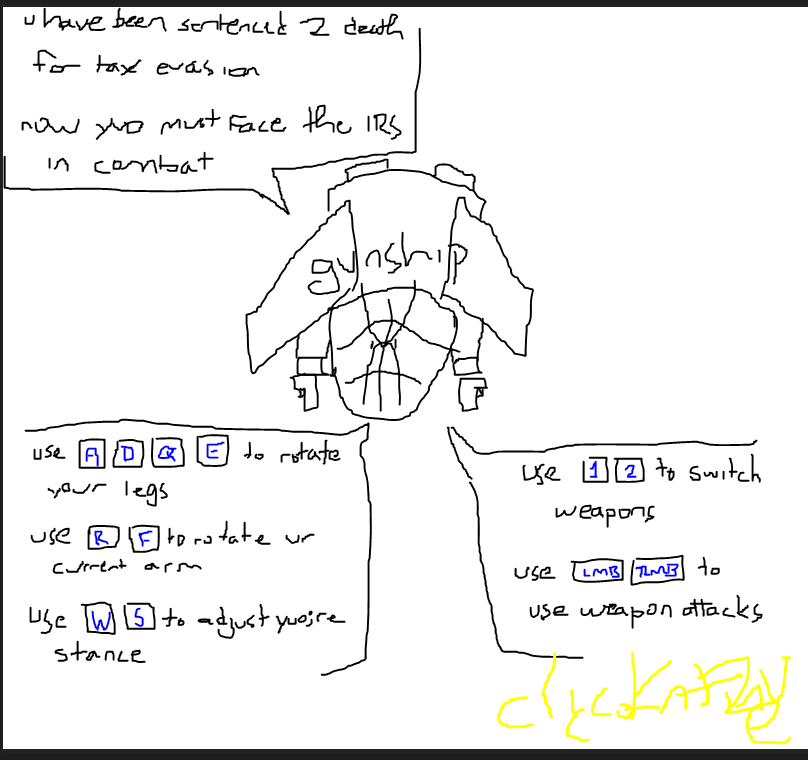 u have been sentenced 2 death
for tax evasion
now yuo must face the IRS
in combat
gunship
use A D Q E to rotate
your legs
use R F to rotate ur
current arm
use W S to adjust yuo;re
stance
use 1 2 to switch
weapons
use LMB RMB to
use weapon attacks